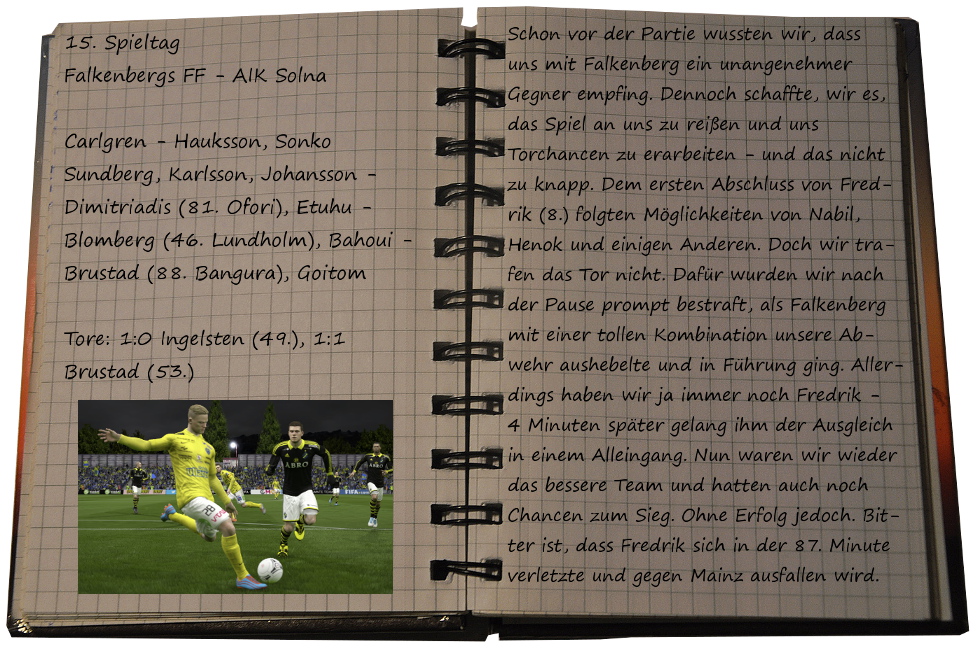 15. Spieltag
Falkenbergs FF - AIK Solna
Carlgren - Hauksson, Sonko
Sundberg, Karlsson, Johansson -
Dimitriadis (81. Ofori), Etuhu -
Blomberg (46. Lundholm), Bahoui -
Brustad (88. Bangura), Goitom
Tore: 1:0 Ingelsten (49.), 1:1
Brustad (53.)
ABRO
Schon vor der Partie wussten wir, dass
uns mit Falkenberg ein unangenehmer
Gegner empfing. Dennoch schaffte, wir es,
das Spiel an uns zu reißen und uns
Torchancen zu erarbeiten - und das nicht
zu knapp. Dem ersten Abschluss von Fred-
rik (8.) folgten Möglichkeiten von Nabil,
Henok und einigen Anderen. Doch wir tra-
fen das Tor nicht. Dafür wurden wir nach
der Pause prompt bestraft, als Falkenberg
mit einer tollen Kombination unsere Ab-
wehr aushebelte und in Führung ging. Aller-
dings haben wir ja immer noch Fredrik -
4 Minuten später gelang ihm der Ausgleich
in einem Alleingang. Nun waren wir wieder
das bessere Team und hatten auch noch
Chancen zum Sieg. Ohne Erfolg jedoch. Bit-
ter ist, dass Fredrik sich in der 87. Minute
verletzte und gegen Mainz ausfallen wird.